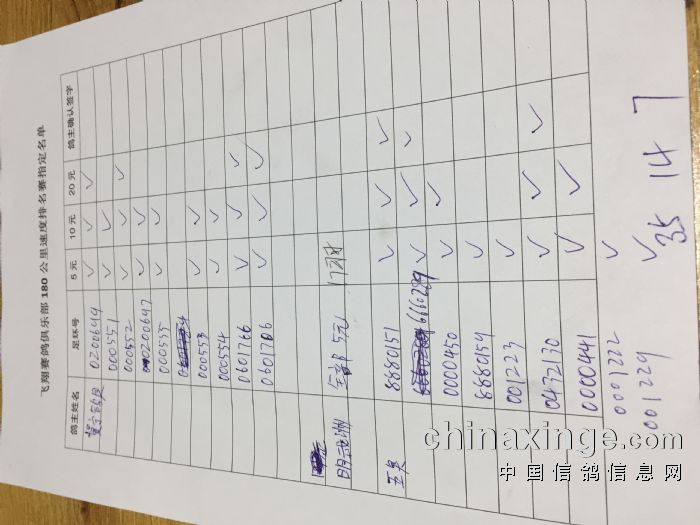 飞翔赛鸽俱乐部 180 公里速度排名赛指定名单
鸽主姓名 足环号 5 元 10 元 20 元 鸽主确认签字
0200649 ✓ ✓ ✓
000551 ✓ ✓
000552 ✓ ✓ ✓
0200647 ✓ ✓
000535 ✓ ✓
000553 ✓ ✓
000554 ✓ ✓
0601766 ✓ ✓ ✓
0601706 ✓ ✓ ✓
全部 5元 17
8880151 ✓ ✓ ✓
6660289 ✓ ✓ ✓
0000450 ✓ ✓
8880159 ✓
001223 ✓
0432130 ✓ ✓ ✓
0000441 ✓ ✓
0001222 ✓
001229 ✓
35 14 7
chinaxinge.com
中国信鸽信息网